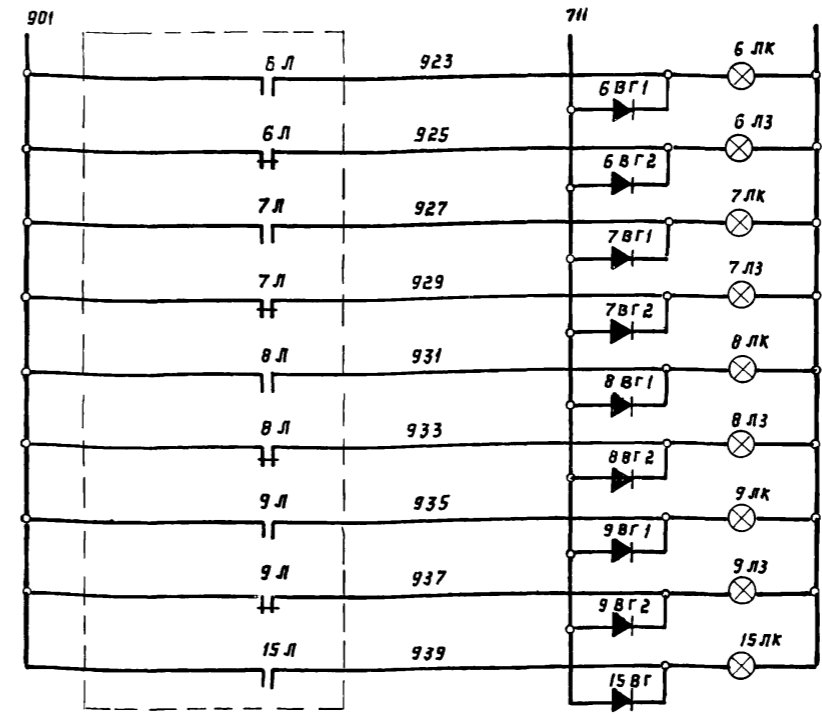 901 711
6 Л 923 6 ЛК
6 ВГ1
6 Л 925 6 ЛЗ
6 ВГ2
7 Л 927 7 ЛК
7 ВГ1
7 Л 929 7 ЛЗ
7 ВГ2
8 Л 931 8 ЛК
8 ВГ1
8 Л 933 8 ЛЗ
8 ВГ2
9 Л 935 9 ЛК
9 ВГ1
9 Л 937 9 ЛЗ
9 ВГ2
15 Л 939 15 ЛК
15 ВГ